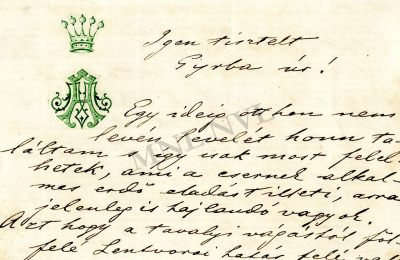 Igen tisztelt
Gyrba úr!
Egy ideig itthon nem
levén, levelét honn ta-
láltam s így csak most felel-
hetek, ami a csernek alkal-
mas erdő eladást illeti, arra
jelenleg is hajlandó vagyok.
Azt hogy a tavalyi vágástól föl-
felé Lentvorói határ felé
MNL NYL